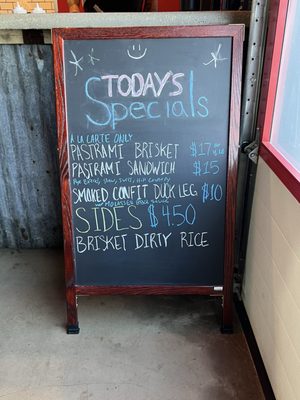 TODAY'S
Specials
A LA CARTE ONLY
PASTRAMI BRISKET $17
PASTRAMI SANDWICH $15
SMOKED CONFIT DUCK LEG $10
SIDES $4.50
BRISKET DIRTY RICE